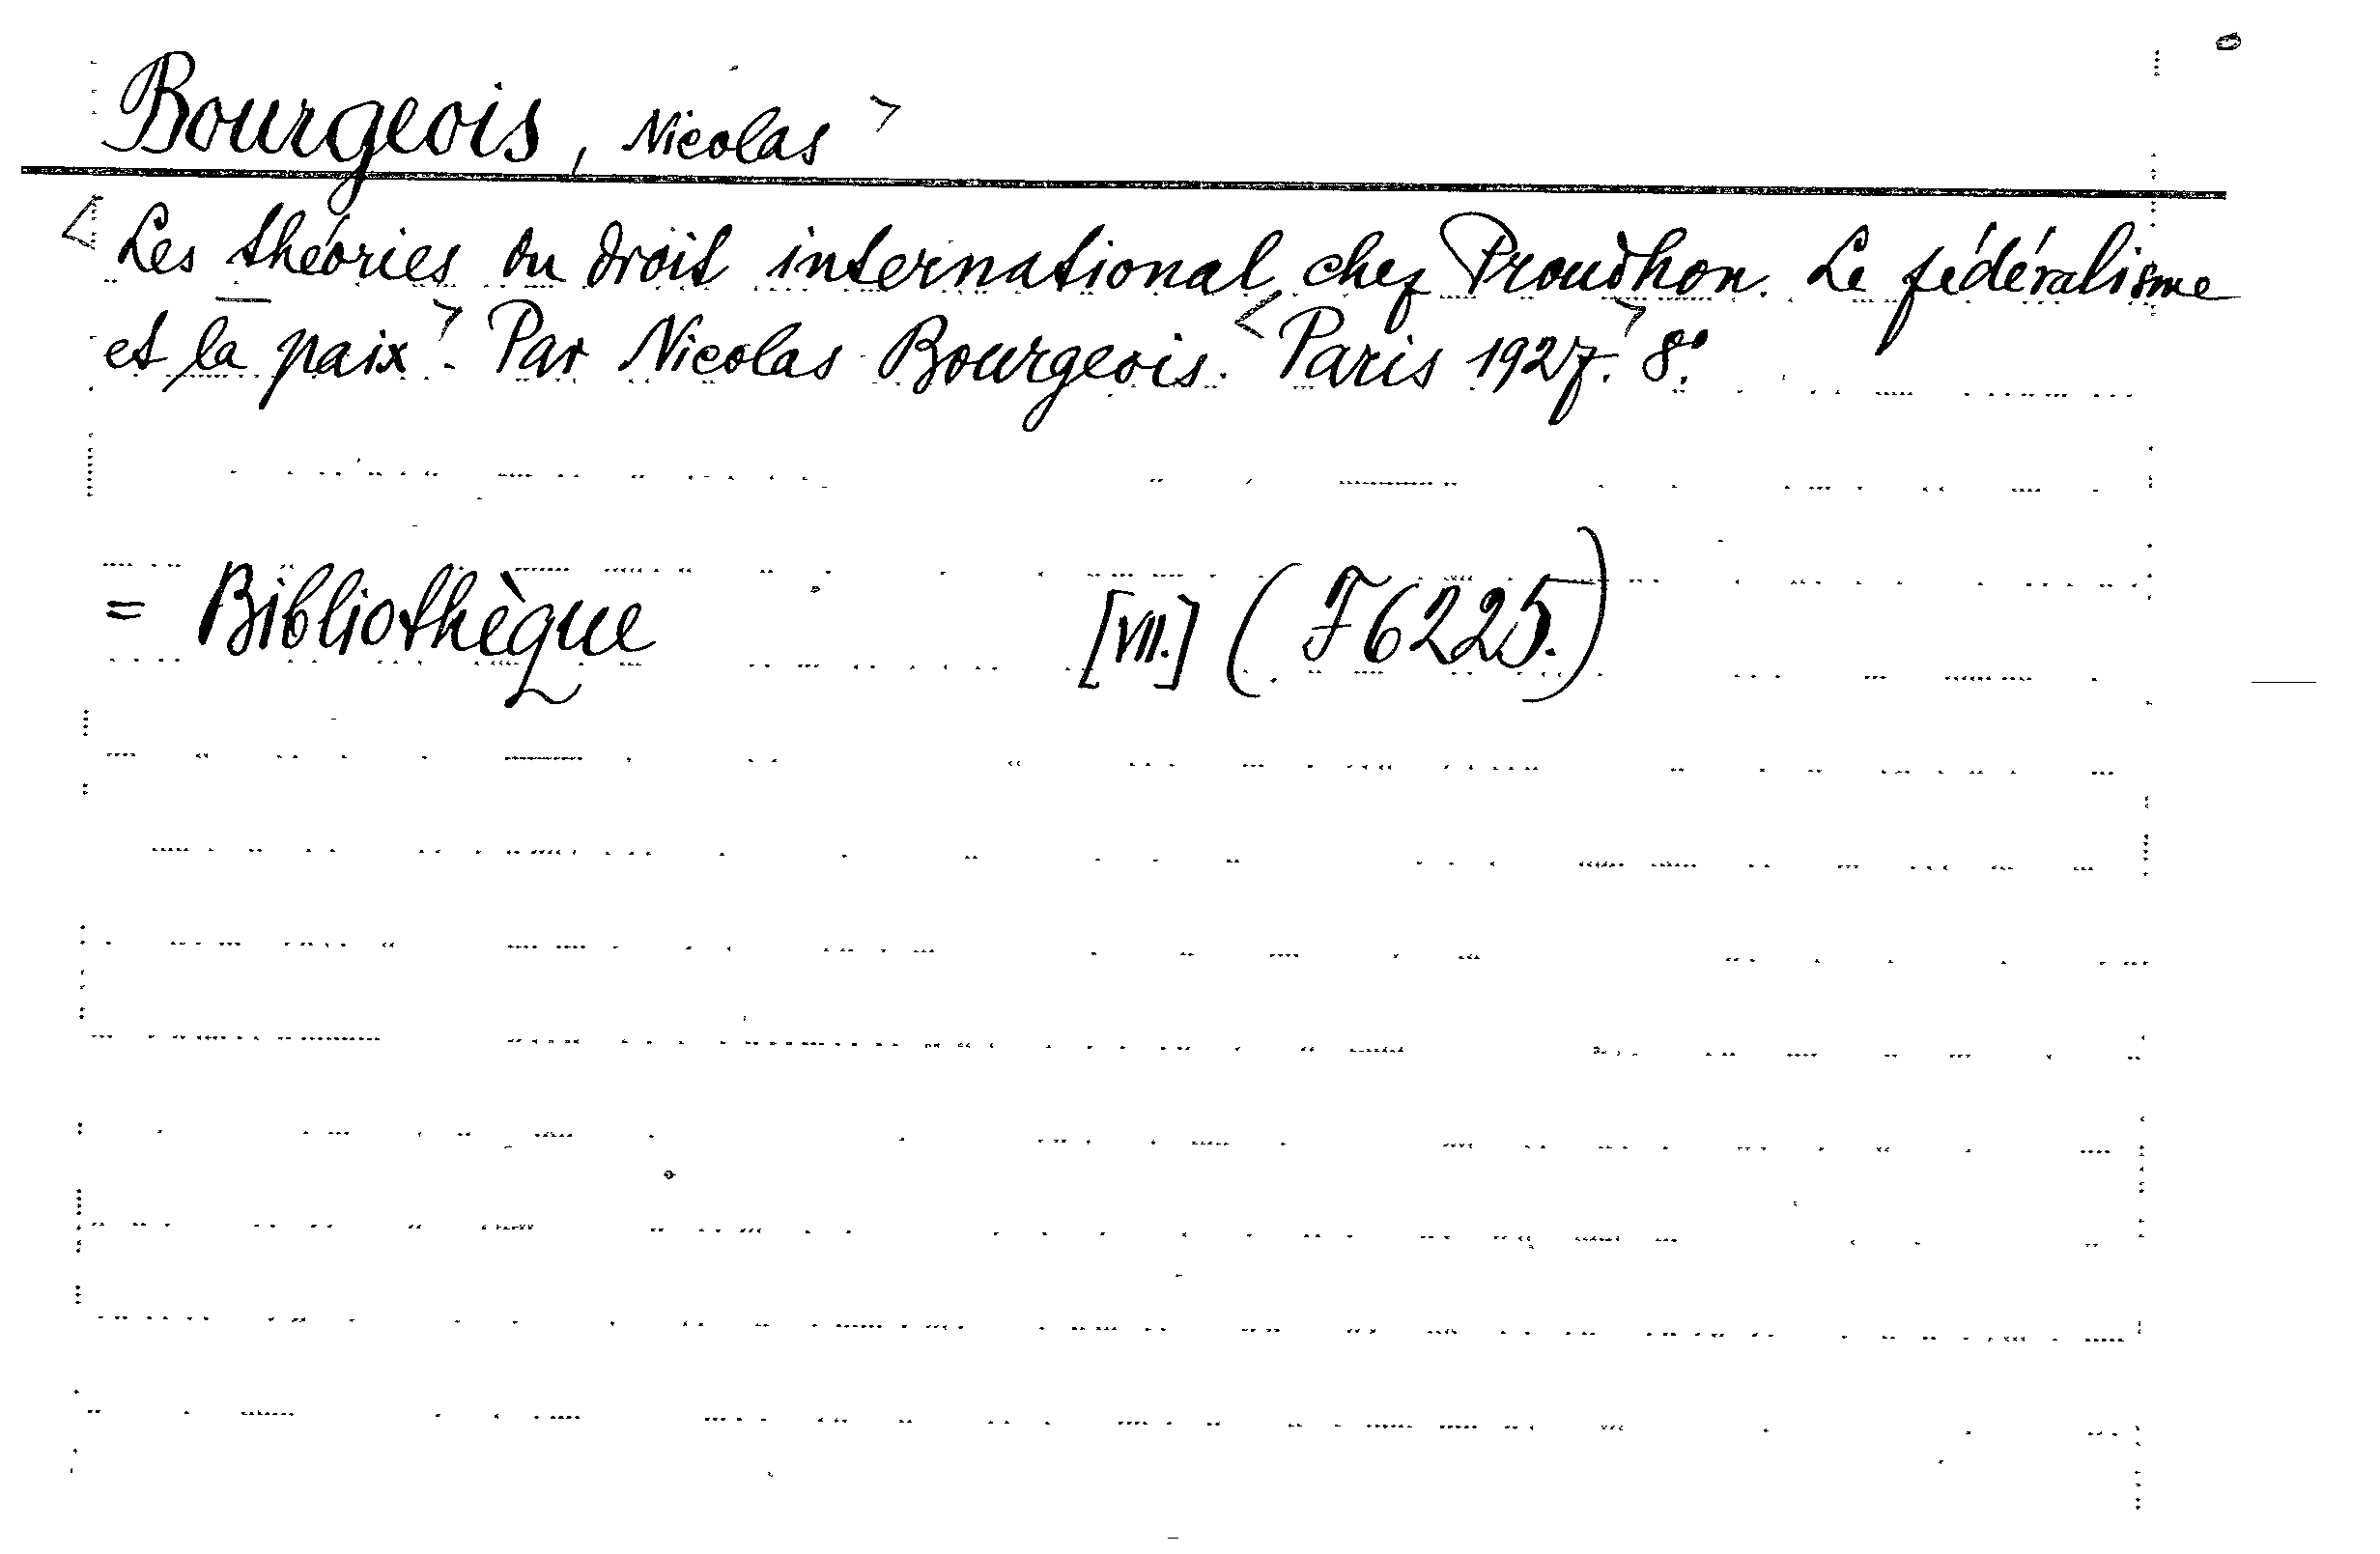 Bourgeois, Nicolas >
< Les théories du droit international chez Proudhon. Le fédéralisme
et la paix >. Par Nicolas Bourgeois. < Paris 1927. > 8°.
= Bibliothèque [VII.] (F6225.)